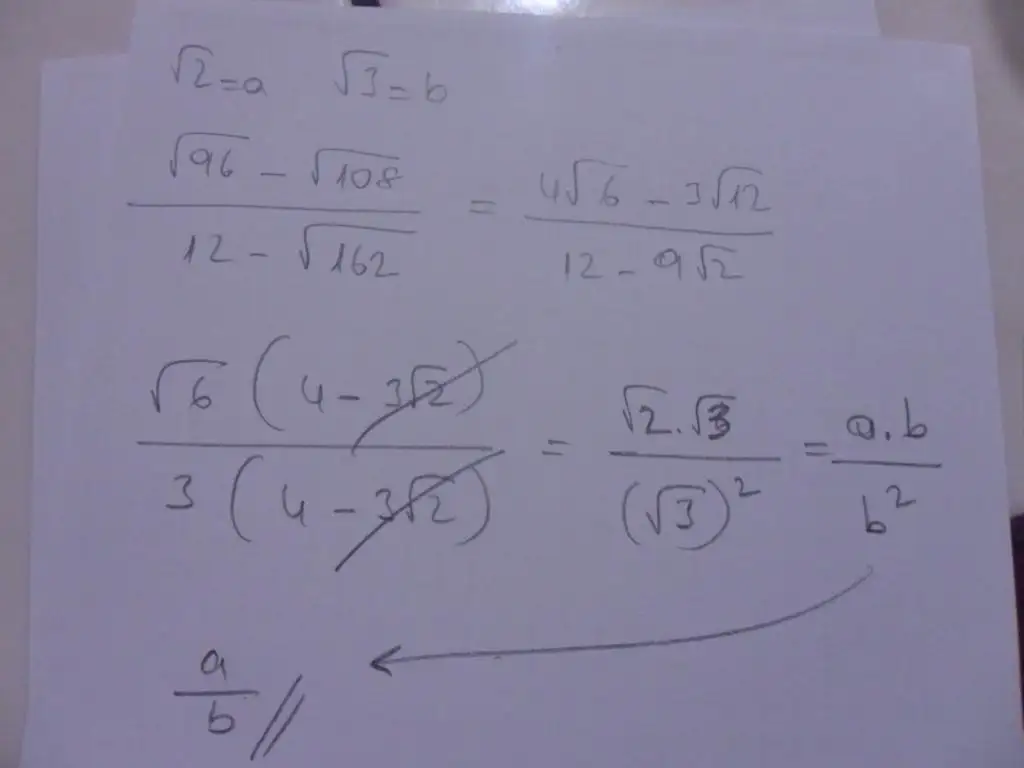 √2 = a √3 = b
(√96 - √108) / (12 - √162) = (4√6 - 3√12) / (12 - 9√2)
√6 (4 - 3√2) / 3 (4 - 3√2) = √2.√3 / (√3)² = a.b / b²
a / b //